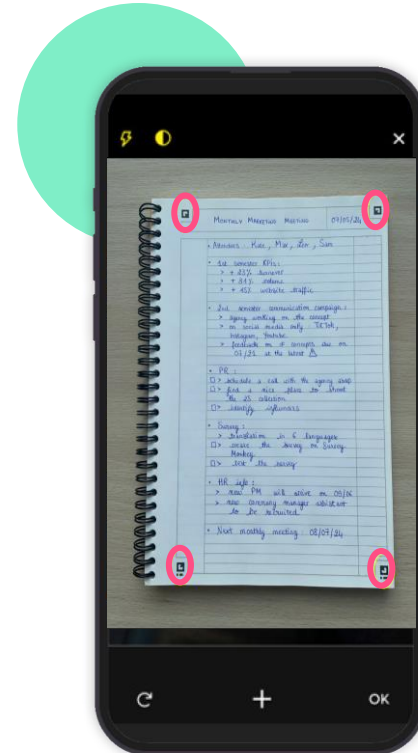 MONTHLY MARKETING MEETING 07/05/24
• Attendees : Kate, Max, Zoe, Sam
• 1st semester KPIs :
> + 23% turnover
> + 31%
> + 15% website traffic
• 2nd semester communication campaign :
> agency working on the concept
> on social media only TikTok,
Instagram, Youtube
> feedback on concepts due on
at the latest ⚠
• PR :
□> schedule a call with the agency
□> find a nice place to shoot
the collection
□> identify influencers
• Survey :
> translation in 6 languages
□> create the survey on Survey
Monkey
□> test the survey
• HR info :
> new PM will arrive on
> new manager assistant
to be recruited
• Next monthly meeting : 08/07/24
OK